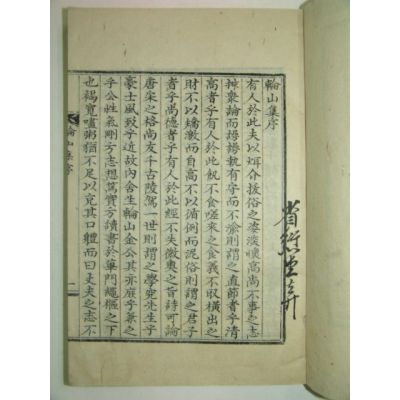 輪山集序
有人於此夫以介援俗之淡曠高尚不事之志
排衆論而踽踽執有守而不渝則謂之直節者乎淸
高者乎有人於此飢不食嗟來之食義不取橫出之
財不以矯激而自高不以循例而泥俗則謂之君子
者乎尚德者乎有人於此經不失微奧之旨詩可論
唐宋之格尚友千古陵駕一世則謂之學究先生乎
豪士風致乎近故內舍生輪山金公其亦庶乎兼之
乎公性氣剛方志想篤實方讀書於蓽門繩樞之下
也褐寬粥猶不足以充其口軆而曰丈夫之志不
輪山集序
一